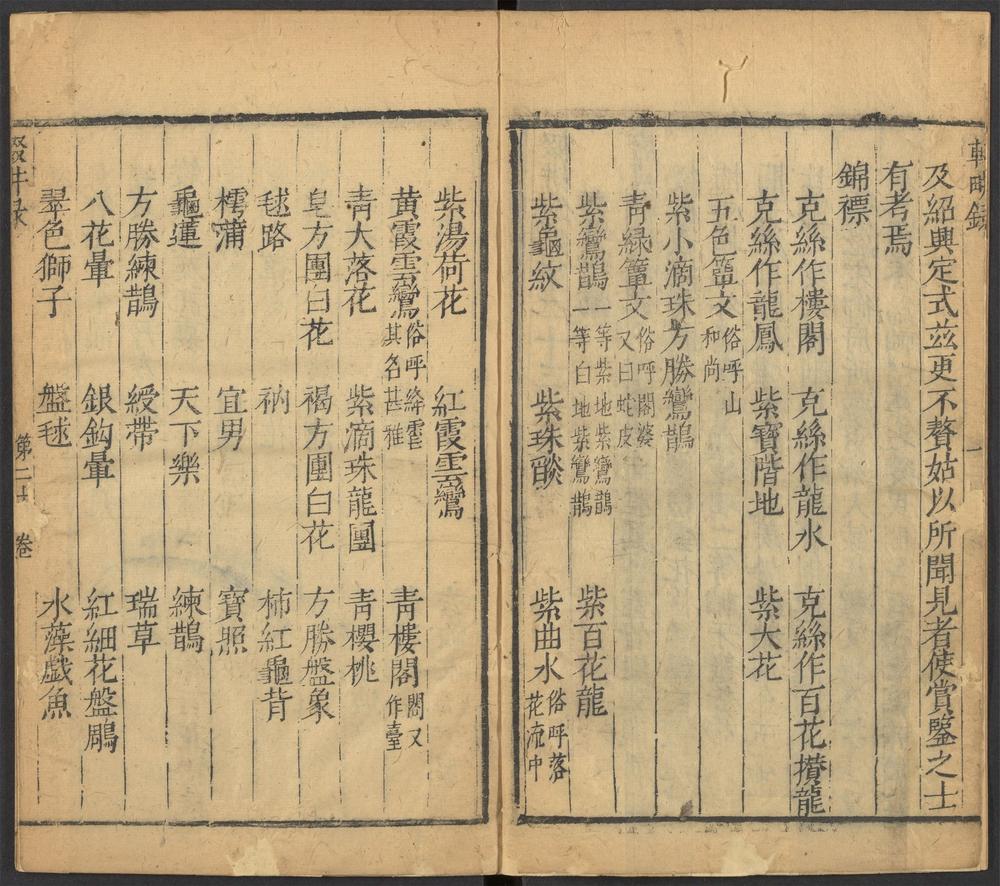 輟畊錄
及紹興定式茲更不贅姑以所聞見者使賞鑒之士
有考焉
錦褾
克絲作樓閣 克絲作龍水 克絲作百花攅龍
克絲作龍鳳 紫寶階地 紫大花
五色簟文俗呼山和尚
紫小滴珠方勝鸞鵲
青綠簟文俗呼闍婆又曰蛇皮
紫鸞鵲一等紫地紫鸞鵲一等白地紫鸞鵲 紫百花龍
紫龜紋 紫珠燄 紫曲水俗呼落花流水
紫湯荷花 紅霞雲鸞
黃霞雲鸞俗呼絳霄其名甚雅 青樓閣閣又作臺
青大落花 紫滴珠龍團 青櫻桃
皂方團白花 褐方團白花 方勝盤象
毬路 衲 柿紅龜背
樗蒲 宜男 寶照
龜蓮 天下樂 練鵲
方勝練鵲 綬帶 瑞草
八花暈 銀鈎暈 紅細花盤鵰
翠色獅子 盤毬 水藻戲魚